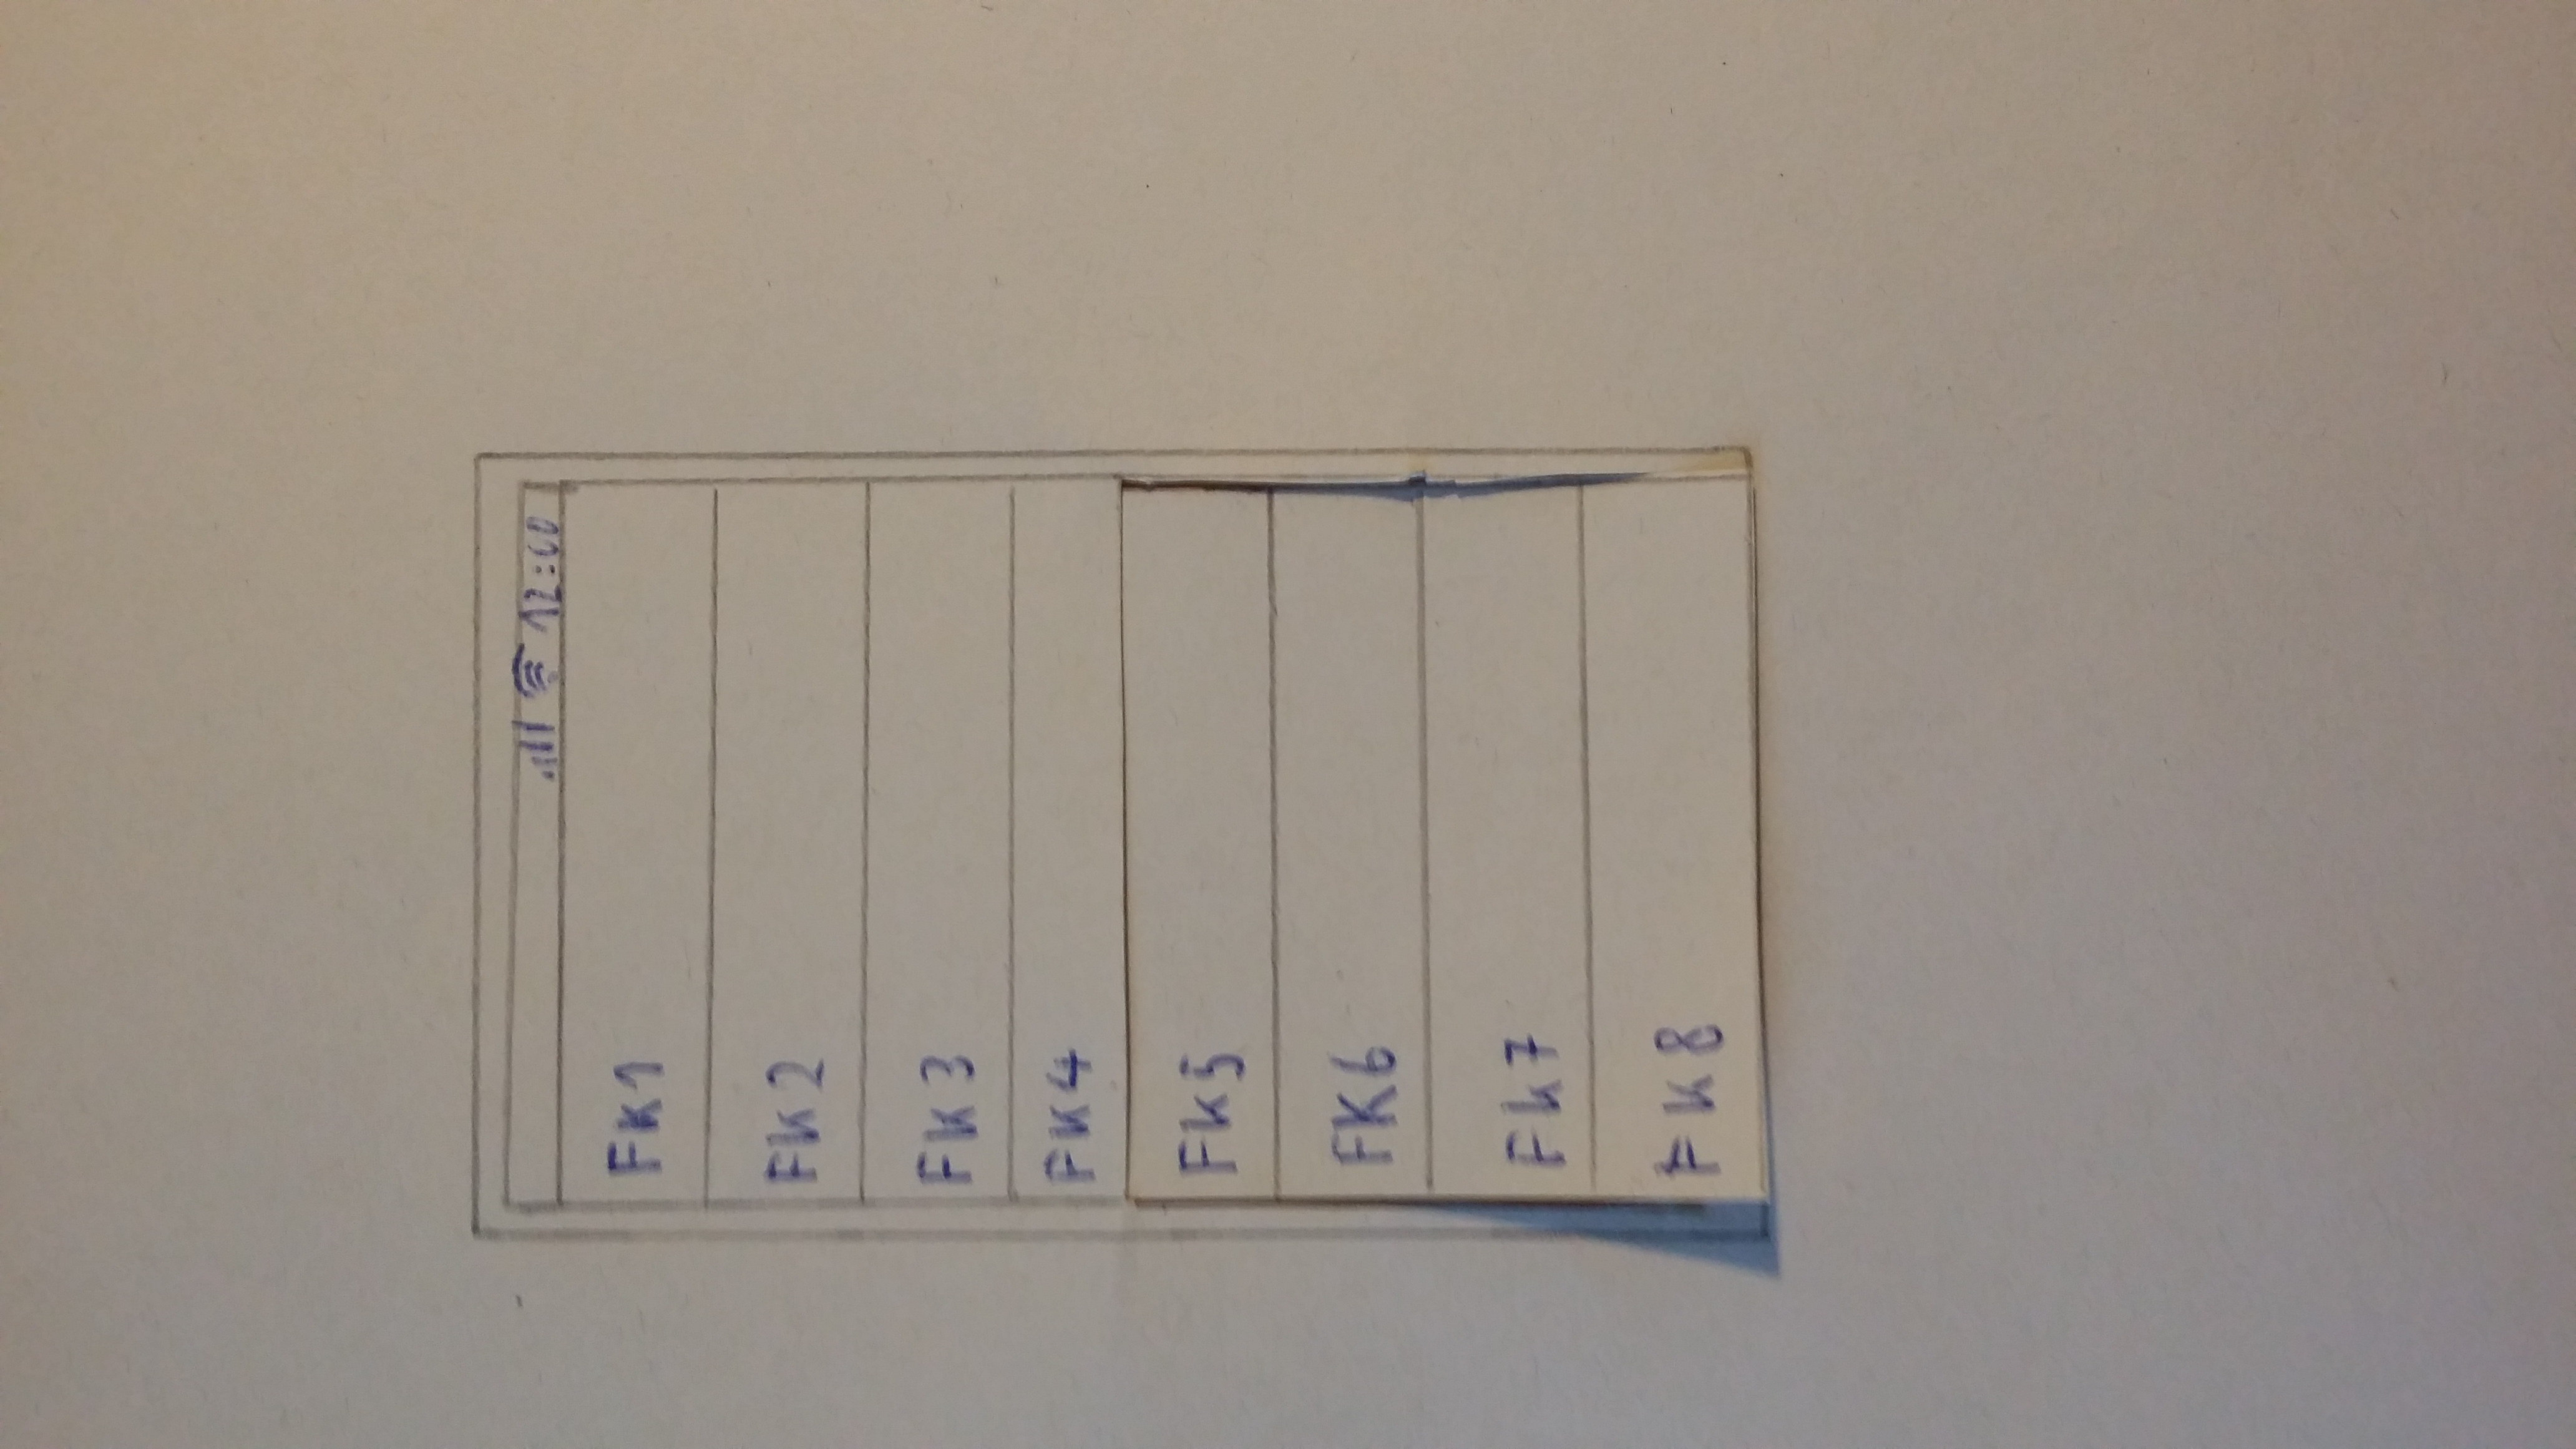 12:00
Fk1
Fk2
Fk3
Fk4
Fk5
FK6
Fk7
Fk8